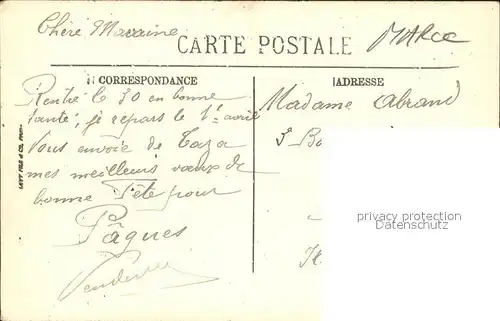 Chère Marraine
CARTE POSTALE
MAROC
CORRESPONDANCE
ADRESSE
Rentré le 30 en bonne
santé, je repars le 1er avril
Vous envoie de Taza
mes meilleurs vœux de
bonne fête pour
Pâques
Madame Abrand
LEVY FILS & CO, PARIS
privacy protection
Datenschutz